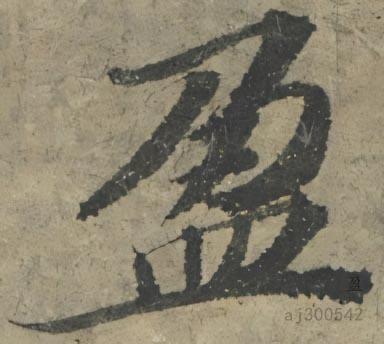 盈
盈
aj300542